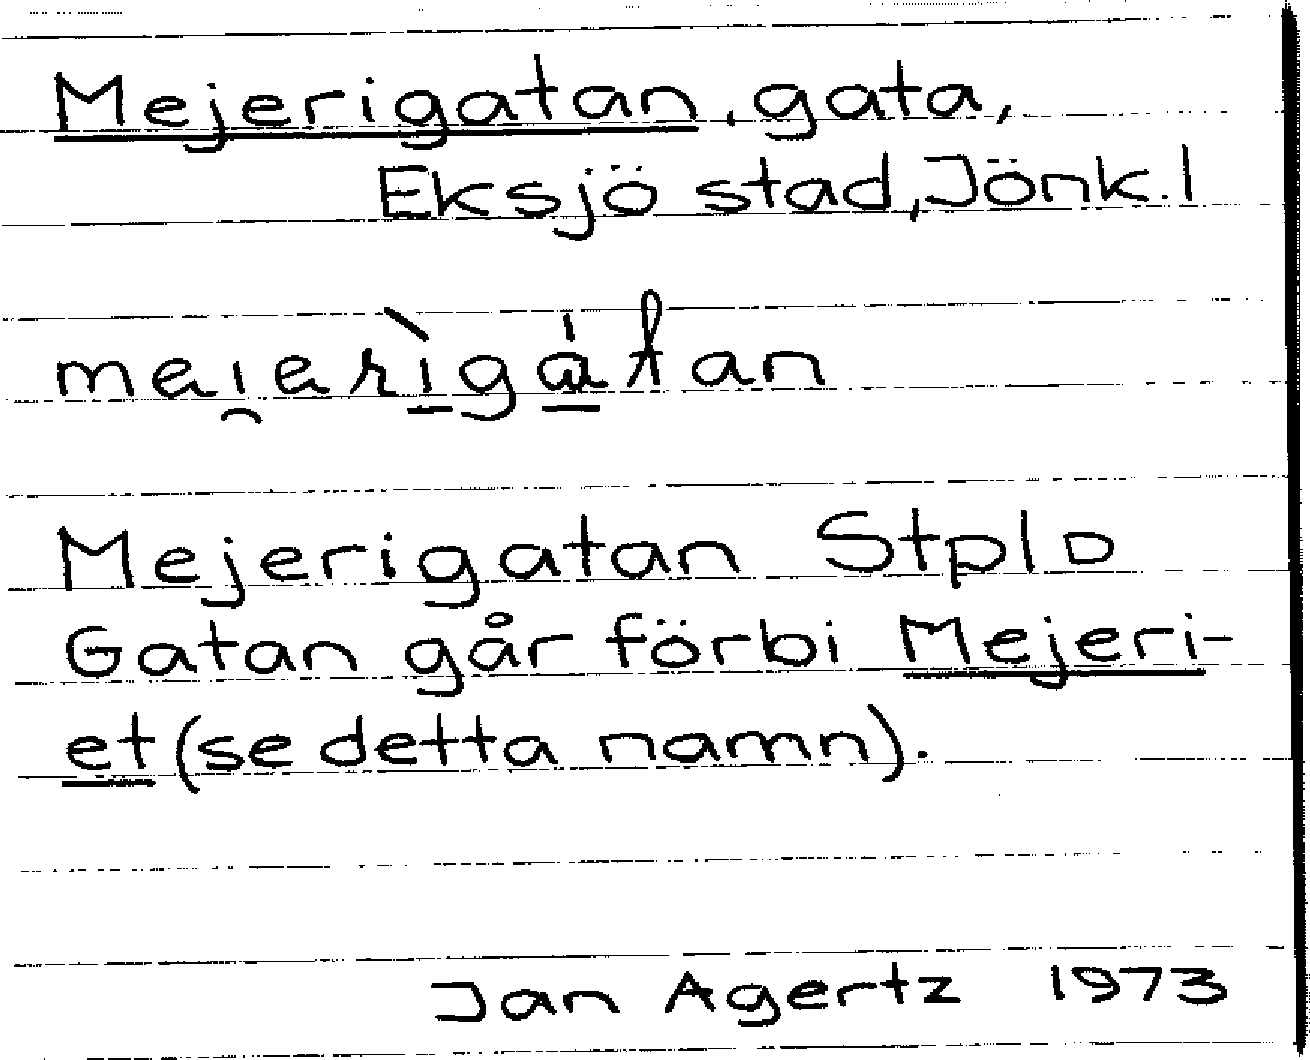 Mejerigatan, gata,
Eksjö stad, Jönk. l
mei̯erìgátan
Mejerigatan Stpl D
Gatan går förbi Mejeri-
et (se detta namn).
Jan Agertz 1973